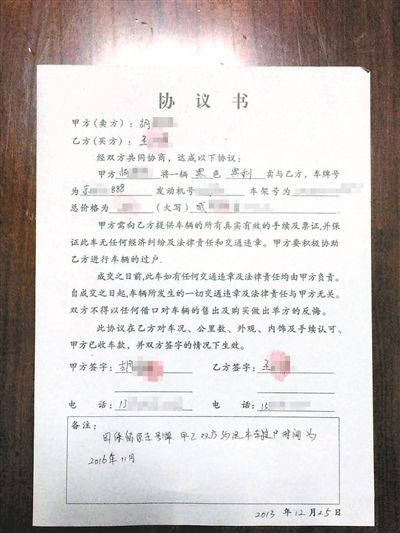 协 议 书
甲方(卖方): 胡
乙方(买方): 王
经双方共同协商,达成以下协议:
甲方 胡 将一辆 黑 色 奥利 卖与乙方,车牌号
为 888 发动机号 车架号为
总价格为 (大写) 贰
甲方需向乙方提供车辆的所有真实有效的手续及票证,并保
证此车无任何经济纠纷及法律责任和交通违章。甲方要积极协助
乙方进行车辆的过户.
成交之日前,此车如有任何交通违章及法律责任均由甲方负责。
自成交之日起,车辆所发生的一切交通违章及法律责任与甲方无关。
双方不得以任何借口对车辆的售出及购买做出单方的反悔。
此协议在乙方对车况、公里数、外观、内饰及手续认可、
甲方已收车款,并双方签字的情况下生效。
甲方签字: 胡 乙方签字: 王
电 话: 13 电 话: 15
备注:
因保留原车号牌 甲乙双方约定本车过户时间为
2016年11月
2013 年 12 月 25 日